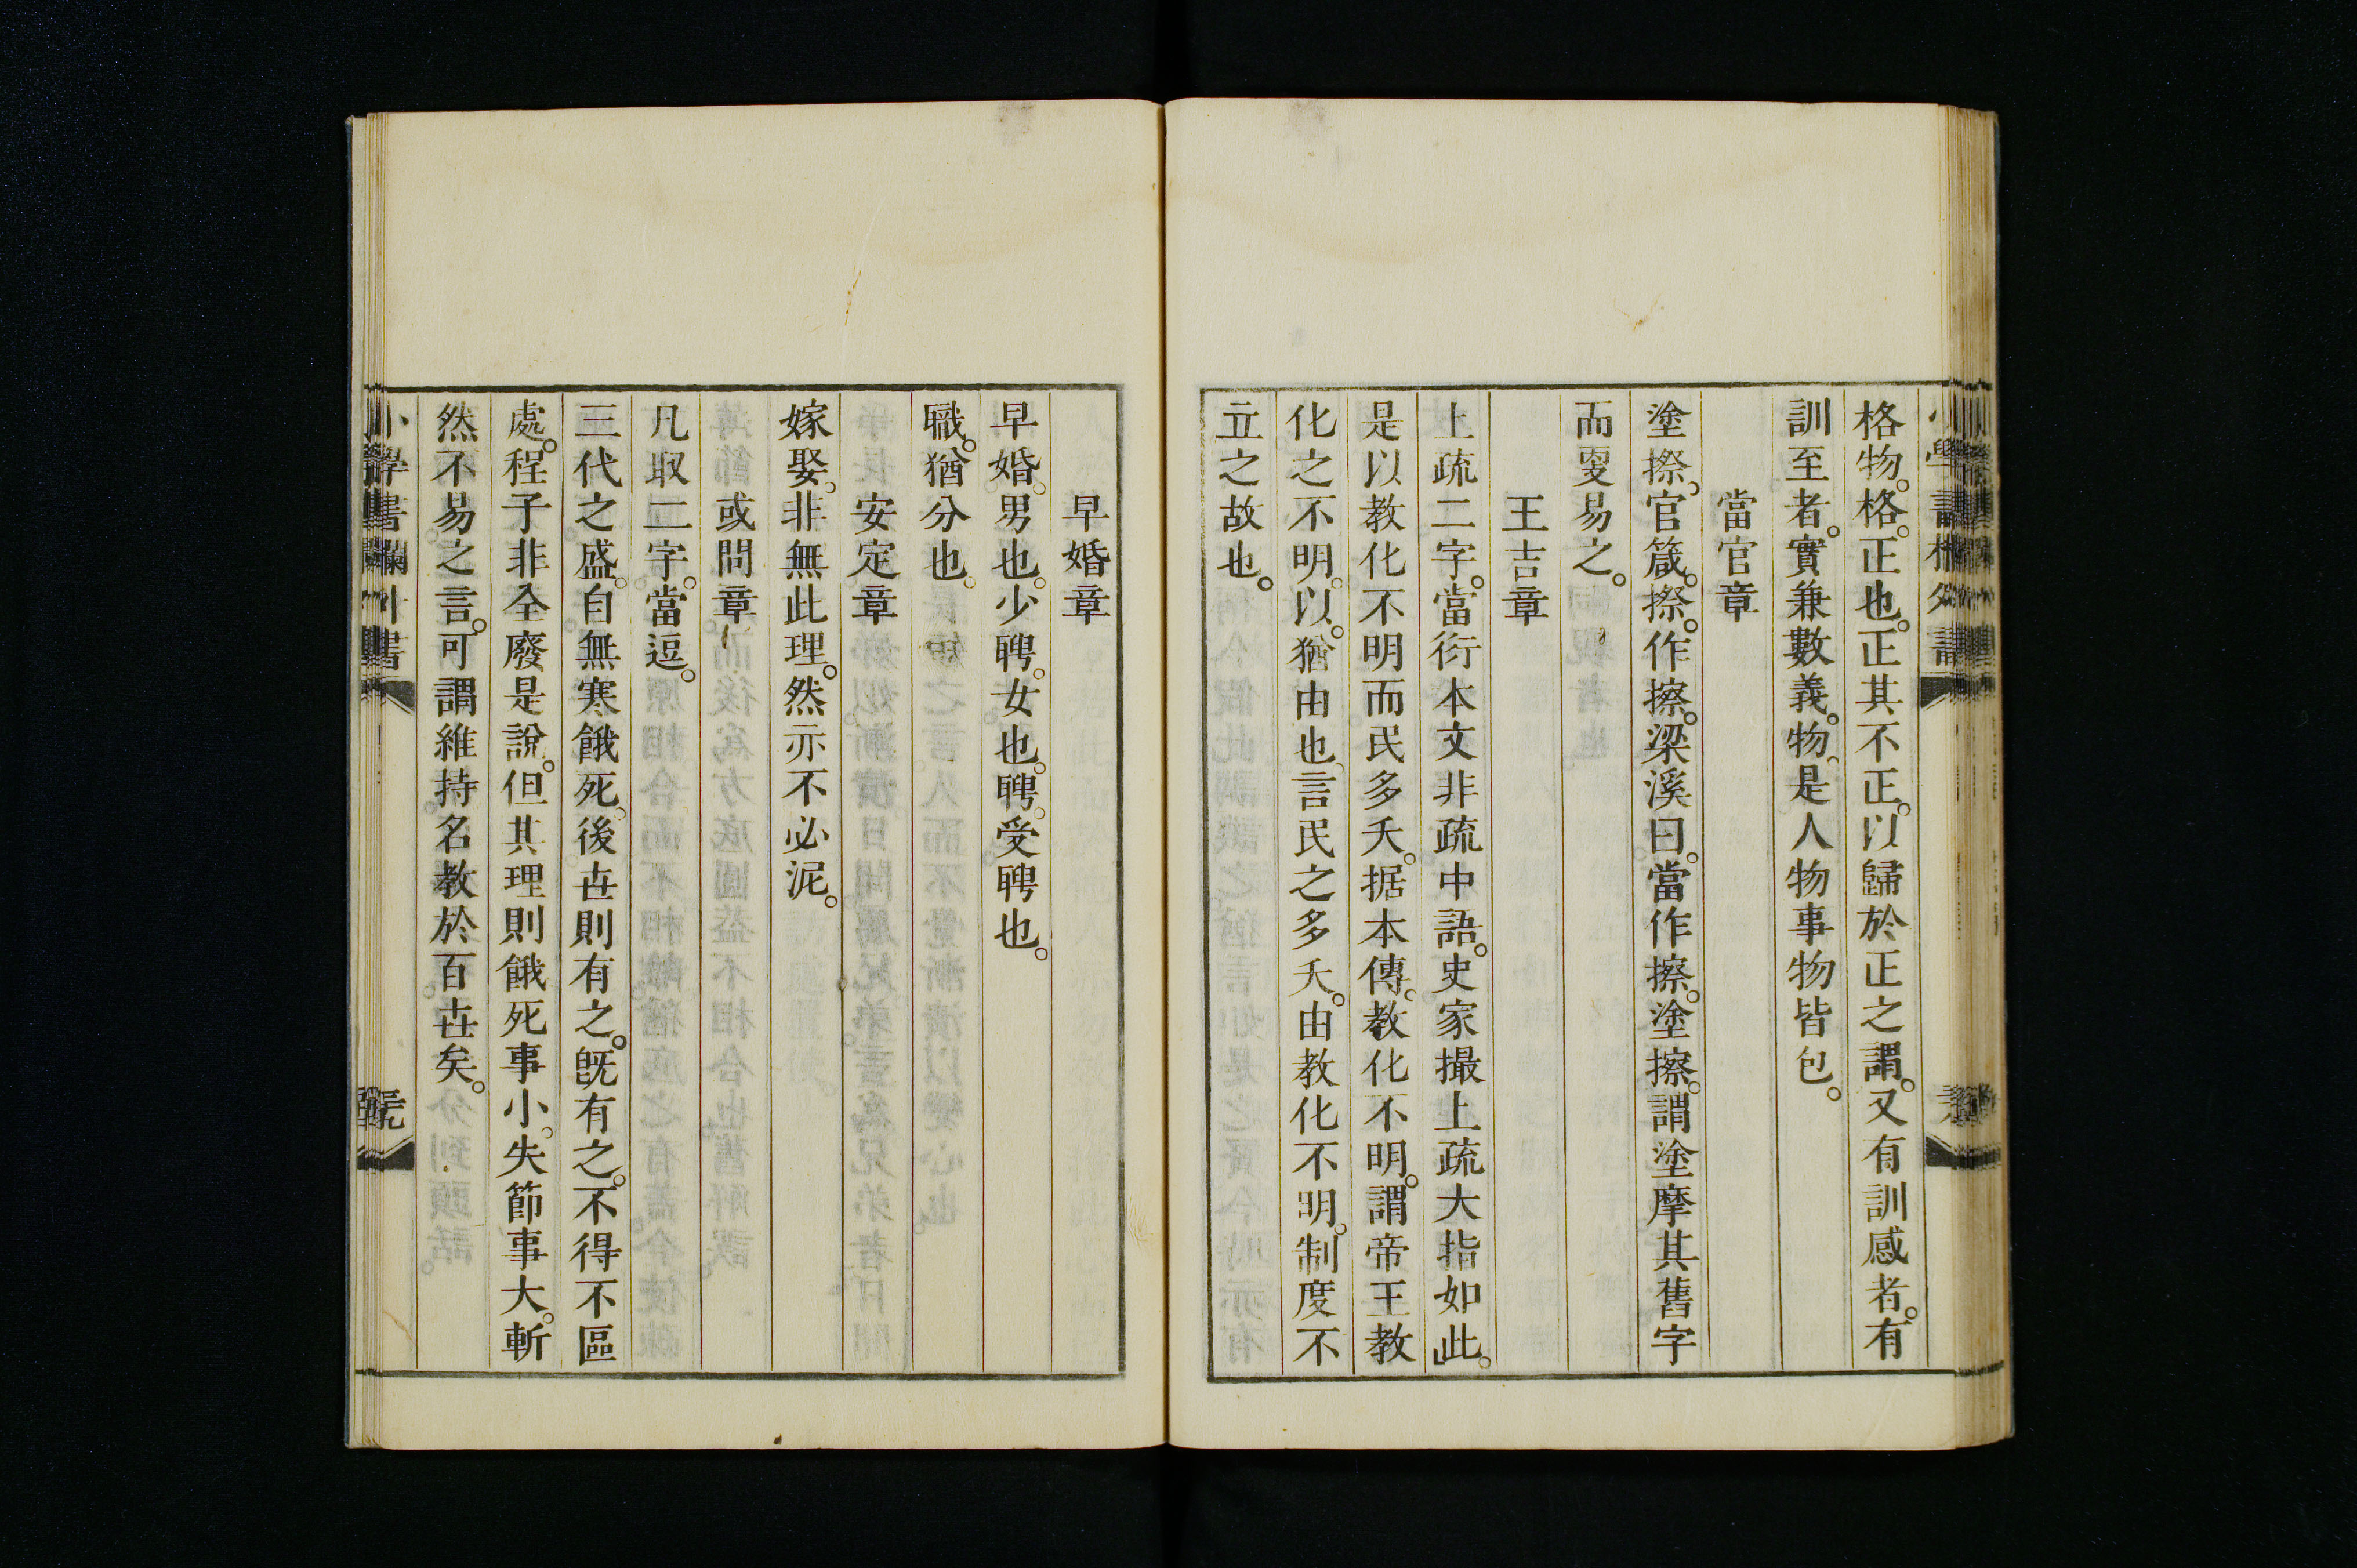 格物。格。正也。正其不正。以歸於正之謂。又有訓感者。有
訓至者。實兼數義。物。是人物事物皆包。
當官章
塗摖。官箴。摖。作擦。梁溪曰。當作擦。塗擦。謂塗摩其舊字
而叓易之。
王吉章
上疏二字。當衍本文非疏中語。史家撮上疏大指如此。」
是以教化不明而民多夭。据本傳。教化不明。謂帝王教
化之不明。以。猶由也。言民之多夭。由教化不明。制度不
立之故也。
早婚章
早婚。男也。少聘。女也。聘。受聘也。
職。猶分也。
安定章
嫁娶。非無此理。然亦不必泥。
凡取二字。當逗。
或問章
三代之盛。自無寒餓死。後世則有之。既有之。不得不區
處。程子非全廢是說。但其理則餓死事小。失節事大。斬
然不易之言。可謂維持名教於百世矣。
小學書欄外書